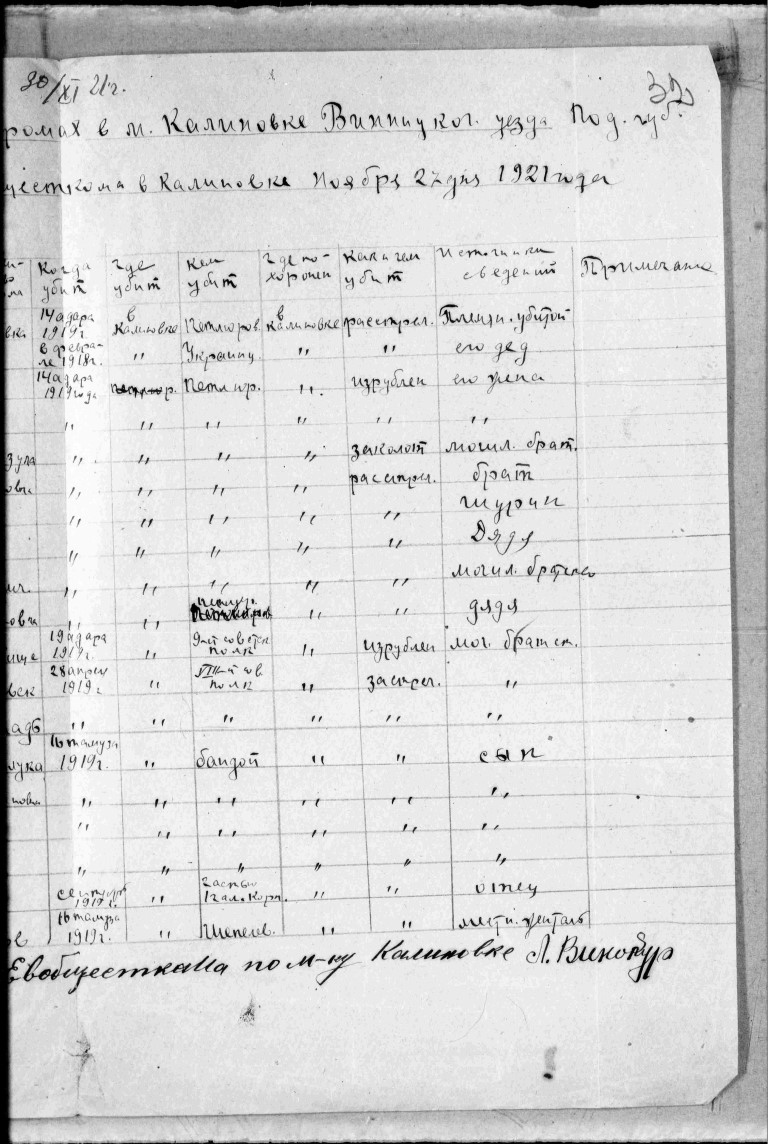 30/XI 21г. 32
ромах в м. Калиновке Винницког. уезда Под. губ.
щесткома в Калиновке Ноября 27 дня 1921 года
Когда убит Где убит Кем убит Где похоронен Как и чем убит Источники сведений Примечание
14 адара 1919 г. в Калиновке Петлюров. в Калиновке расстрел. убитой
в феврале 1918 г. " Украинц. " " его дед
14 адара 1919 года Петлюр. " изрублен его жена
" " " " " "
зула " " " " заколот могил. брат.
овка " " " " расстрел. брат
" " " " " шурин
" " " " " Дядя
" " " " " могил. братско
овка " " петлюр. " " дядя
ище 19 адара 1919 г. " 9-ый советск полк " изрублен мог. братск.
вск 28 апреля 1919 г. " VIII-й сов. полк " застрел. "
адь " " " " " "
лука 16 тамуза 1919 г. " бандой " " сын
новка " " " " " "
" " " " " "
" " " " " "
сентябрь 1919 г. " частью 1 гал. Корп. " " отец
16 тамуза 1919 г. " " " местн. житель
Евобщесткома по м-ку Калиновке Л. Винокур